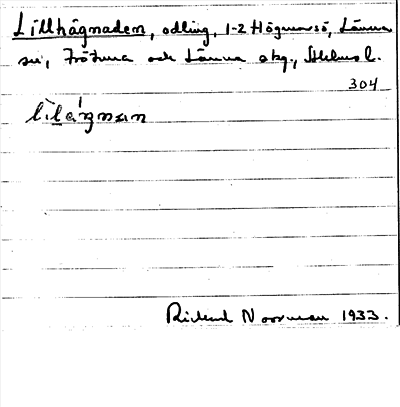 Lillhägnaden, odling, 1-2 Högmarsö, Länna
sn, Frötuna och Länna skg., Sthlms l.
304
Richard Noorman 1933.